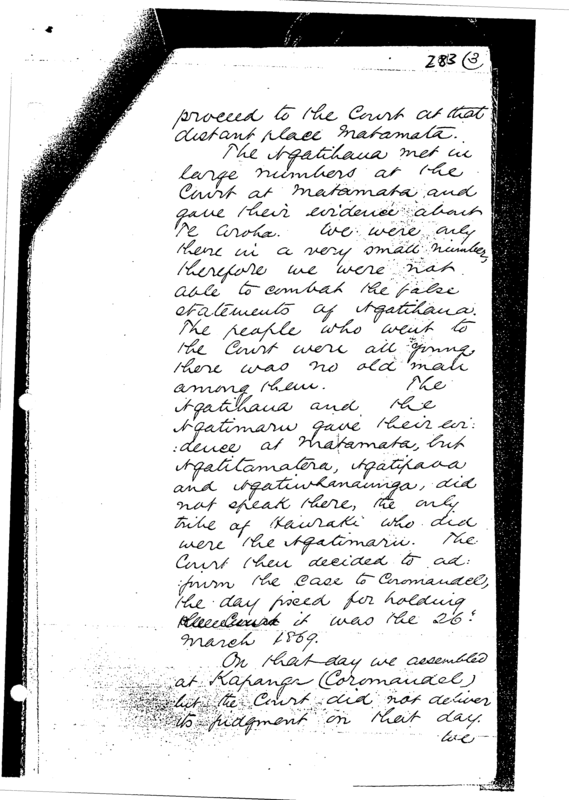 283 (3)
proceed to the Court at that
distant place Matamata.
The Ngatihaua met in
large numbers at the
Court at Matamata and
gave their evidence about
Te Aroha. We were only
there in a very small number,
therefore we were not
able to combat the false
statements of Ngatihaua.
The people who went to
the Court were all young,
there was no old man
among them. The
Ngatihaua and the
Ngatimaru gave their evi:
:dence at Matamata, but
Ngatitamatera, Ngatipaoa
and Ngatiwhanaunga, did
not speak there, the only
tribe of Hauraki who did
were the Ngatimaru. The
Court then decided to ad:
:journ the case to Coromandel,
the day fixed for holding
the Court it was the 26.
March 1869.
On that day we assembled
at Kapanga (Coromandel)
but the Court did not deliver
its judgment on that day.
We